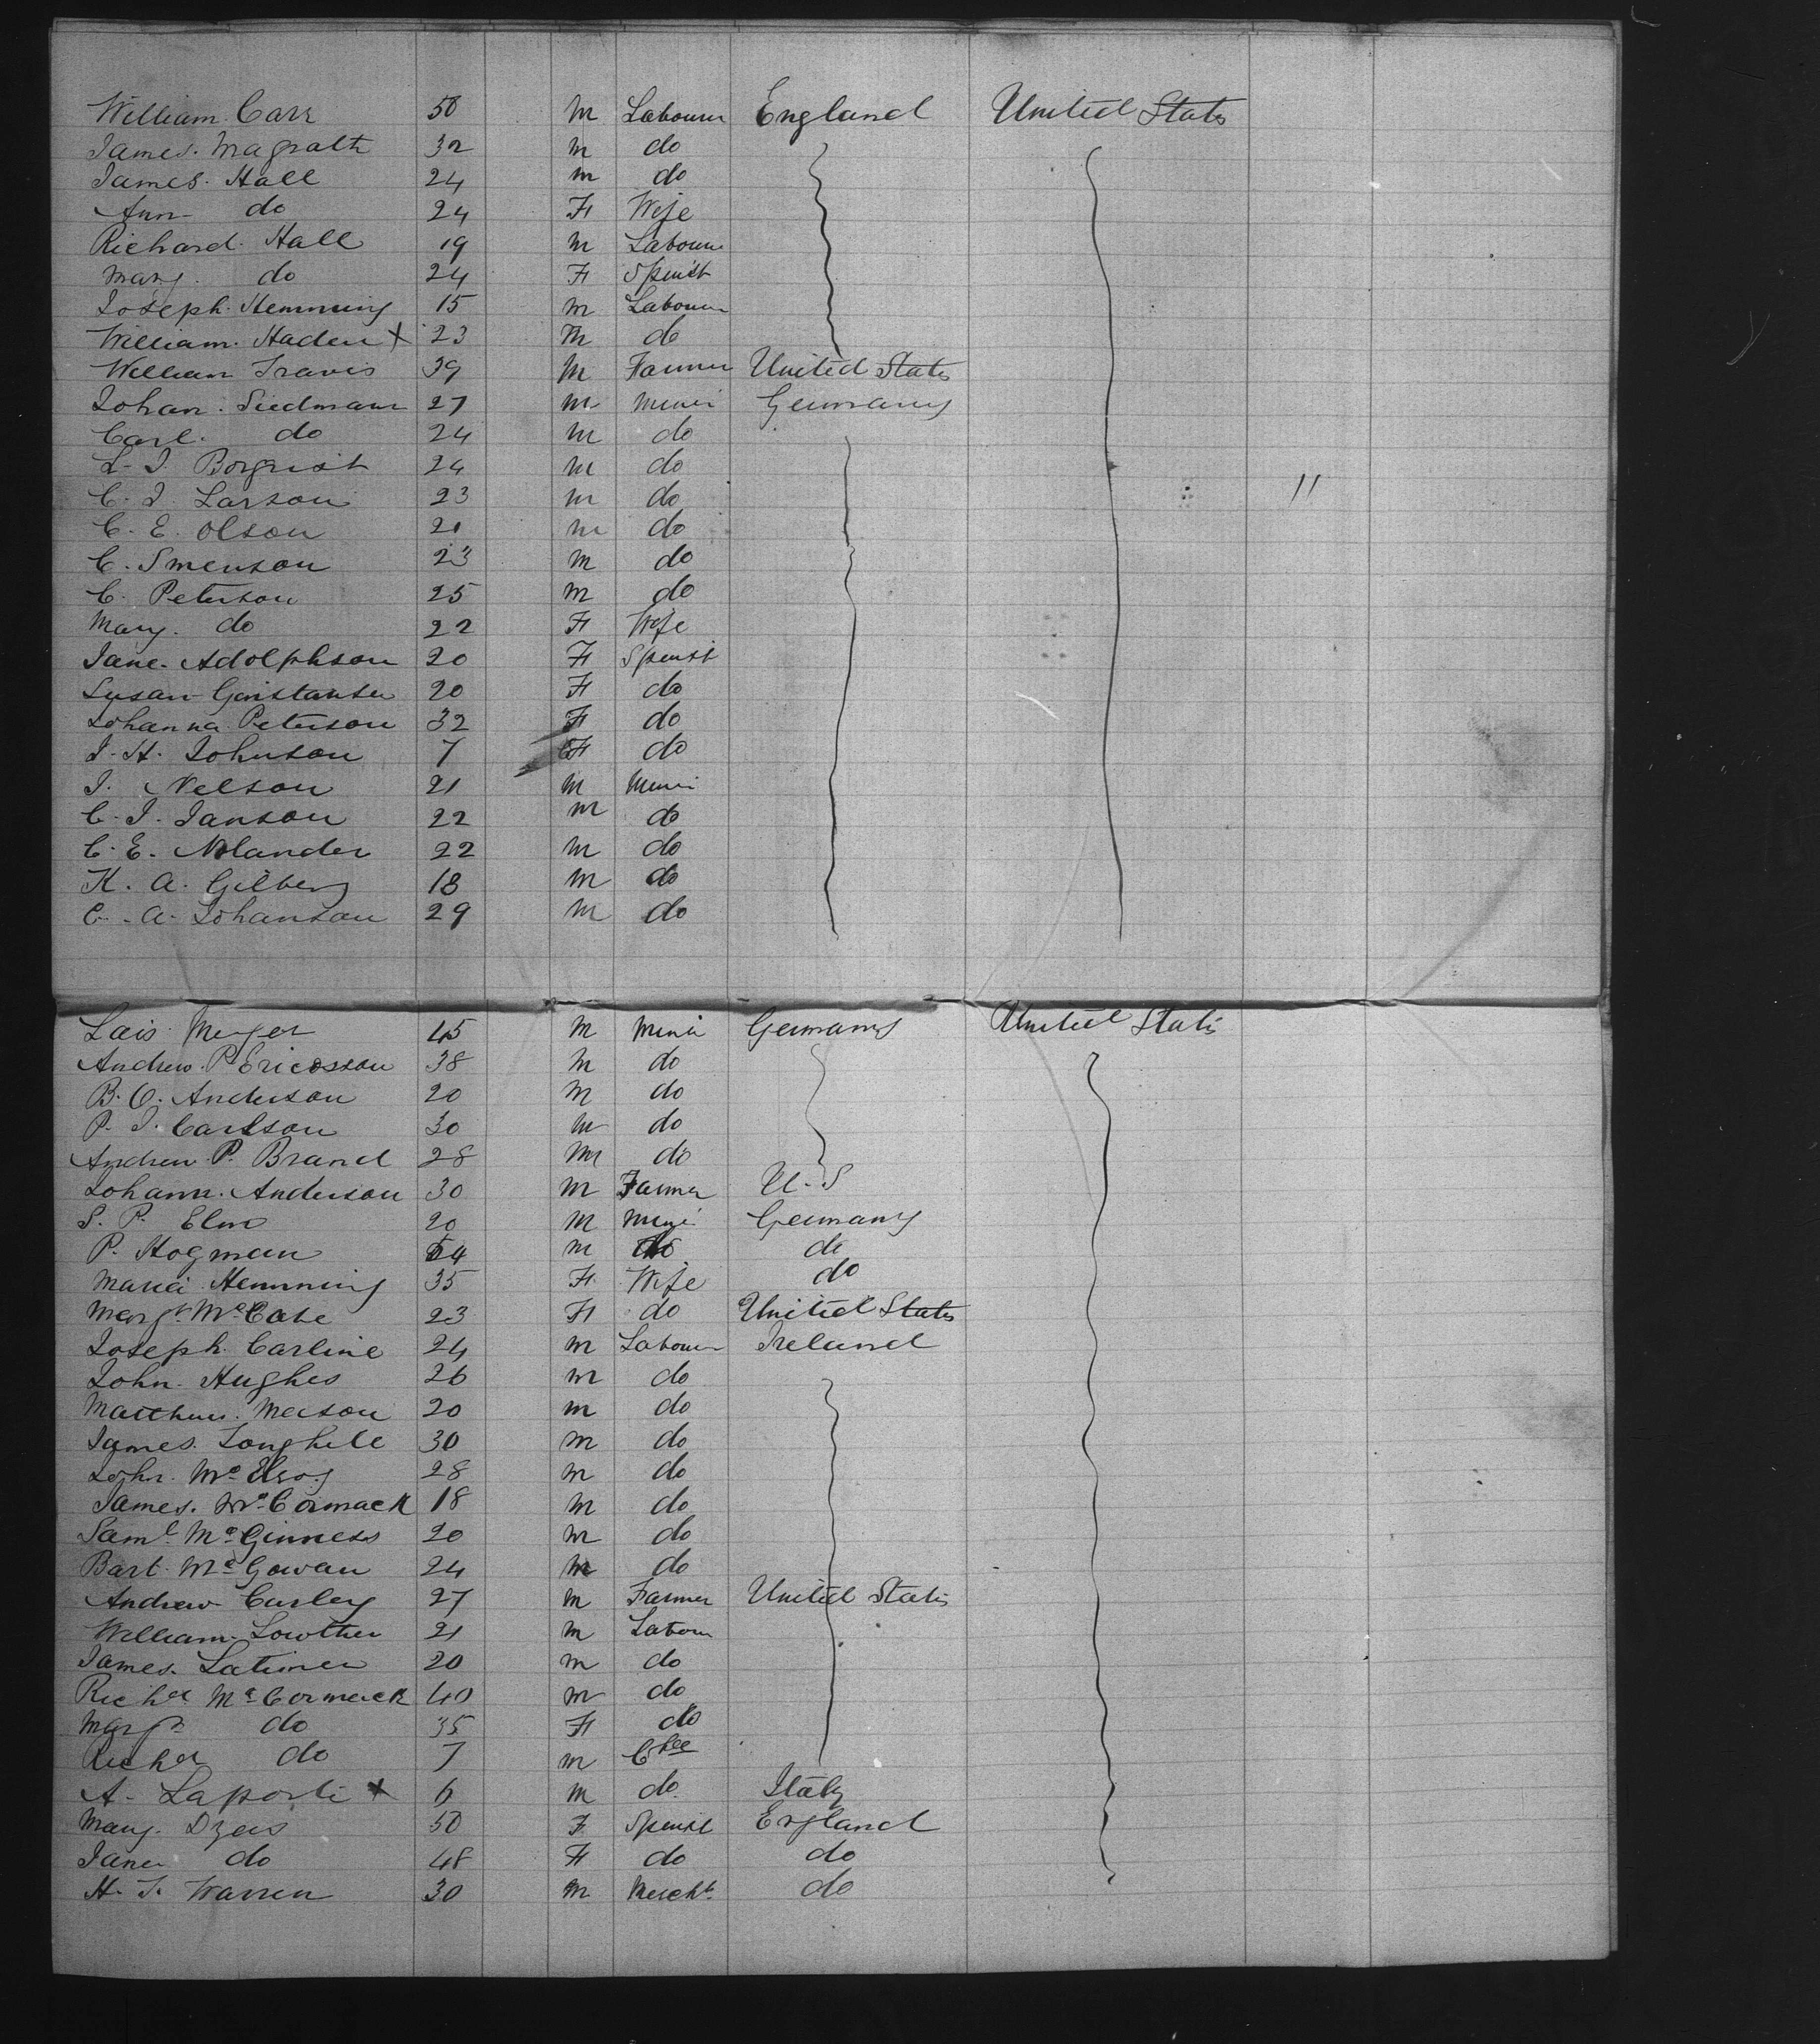 William Carr 50 M Labourer England United States
James. Magrath 32 m do
James. Hall 24 m do
Ann do 24 F Wife
Richard. Hall 19 m Labourer
Mary. do 24 F Spinst
Joseph. Hemming 15 m Labourer
William. Haden X 23 m do
William Travis 39 M Farmer United States
Johan. Siedmann 27 m Miner Germany
Carl. do 24 m do
L. J. Borgrist 24 m do
C. J. Larson 23 m do
C. E. Olson 21 m do
C. Smenson 23 m do
C. Peterson 25 m do
Mary. do 22 F Wife
Jane. Adolphson 20 F Spinst
Susan 20 F do
Johanna Peterson 32 F do
J. H. Johnson 7 F do
J. Nelson 21 M Miner
C. J. Janson 22 m do
C. E. Nolander 22 m do
K. A. Gilberg 18 m do
C. A. Johanson 29 m do
Lais Meyer 45 M Miner Germany United States
Andrew. P. Ericosson 38 m do
B. O. Anderson 20 m do
P. J. Carlson 30 m do
Andrew P. Brand 28 m do
Johann. Anderson 30 m Farmer U. S
S. P. Elm 20 M Miner Germany
P. Hogman 54 m do do
Maria Hemming 35 F Wife do
Margt McCabe 23 F do United States
Joseph. Carline 24 m Labourer Ireland
John. Hughes 26 m do
Matthew. Meison 20 m do
James. Longhill 30 m do
John. McElroy 28 m do
James. McCormack 18 m do
Saml McGinness 20 m do
Bart. McGowan 24 m do
Andrew Curley 27 m Farmer United States
William. Lowther 21 m Labour
James. Latimer 20 m do
Richd McCormack 40 m do
Margt do 35 F do
Richd do 7 m
A. Laporte X 6 m do. Italy
Mary. 50 F Spinst England
Jane do 48 F do do
H. J. Warren 30 m Mercht do